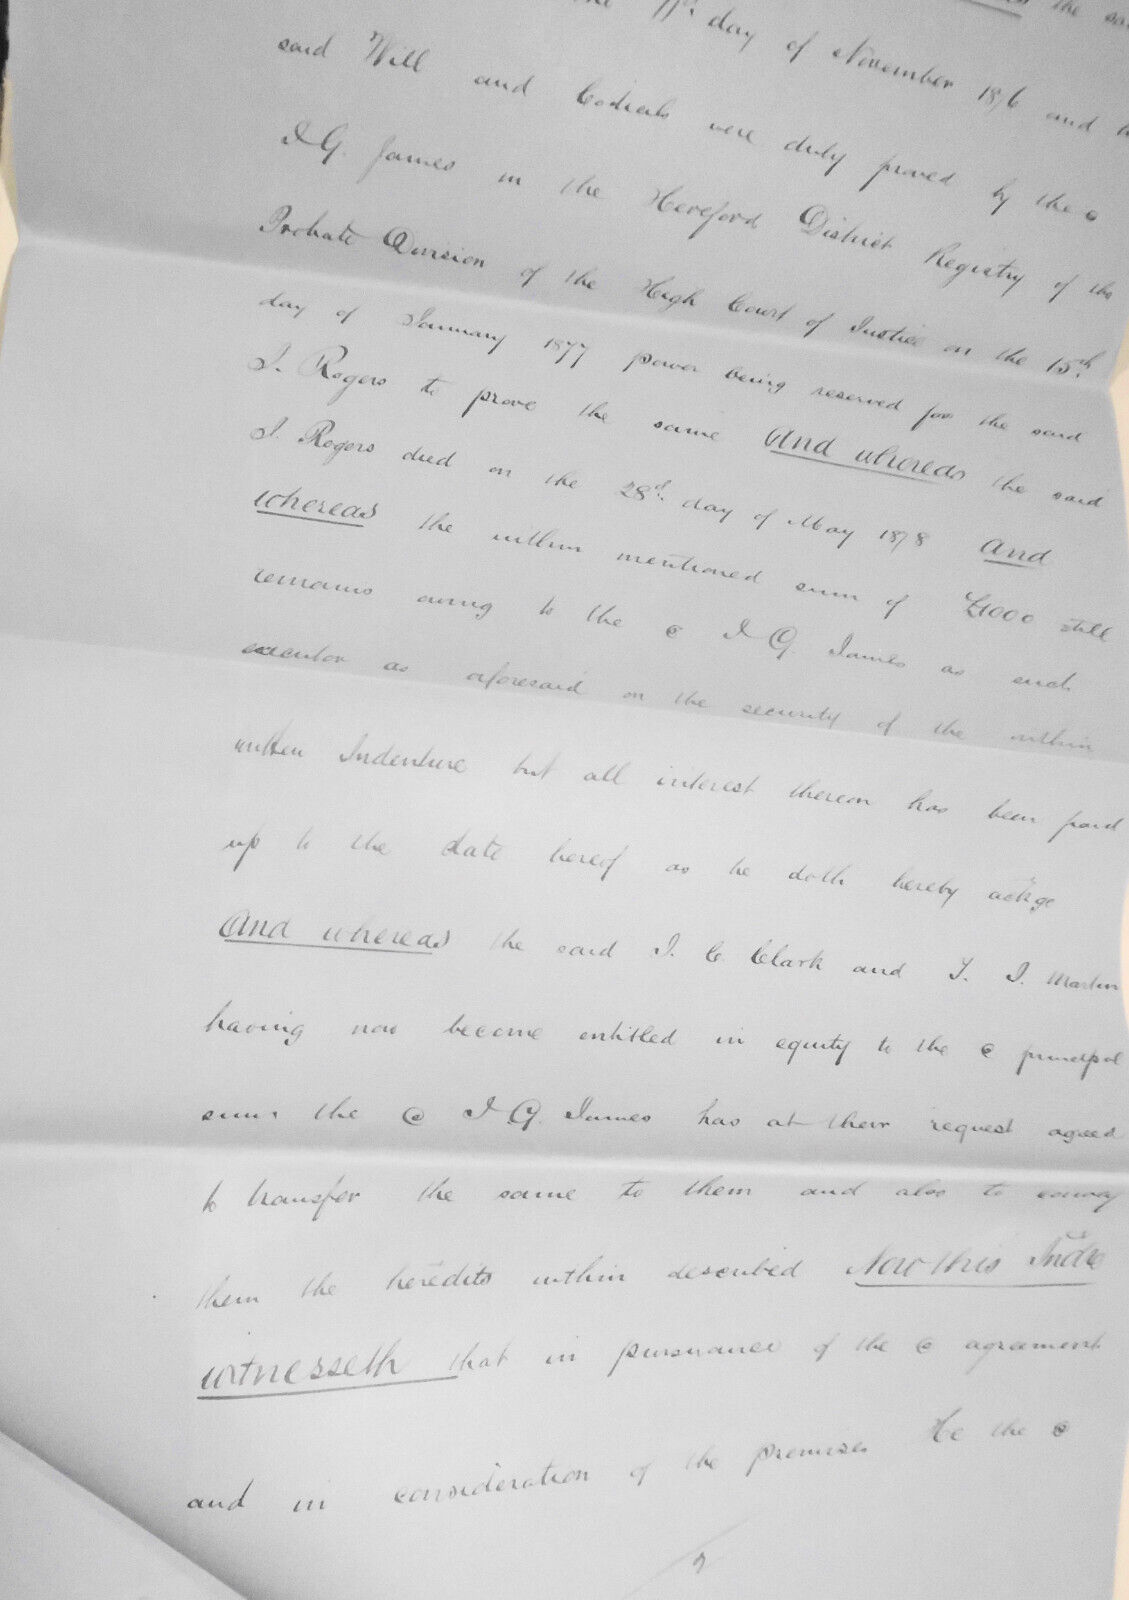 the 11th day of November 1876 and the
said Will and Codicils were duly proved by the s
J G. James in the Hereford District Registry of the
Probate Division of the High Court of Justice on the 15th
day of January 1877 power being reserved for the said
J. Rogers to prove the same And whereas the said
J. Rogers died on the 28th day of May 1878 And
whereas the within mentioned sum of £1000 still
remains owing to the s J G. James as such
executor as aforesaid on the security of the within
written Indenture but all interest thereon has been paid
up to the date hereof as he doth hereby ackge
And whereas the said J. C. Clark and T. J. Martin
having now become entitled in equity to the s principal
sum the s J G. James has at their request agreed
to transfer the same to them and also to convey
them the heredits within described Now this Indre
witnesseth that in pursuance of the s agreement
and in consideration of the premises He the s